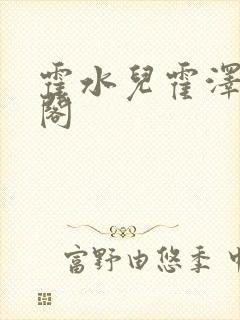 霍水兒霍澤
閣
富野由悠季